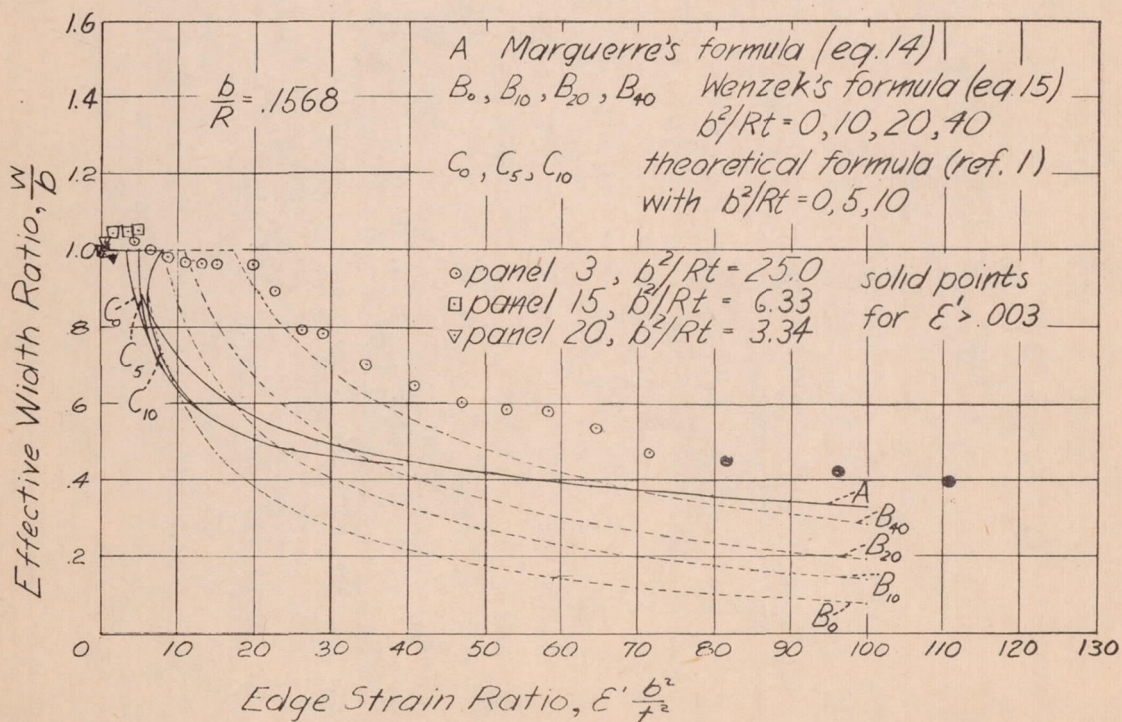 1.6
1.4
1.2
1.0
.8
.6
.4
.2
0
Effective Width Ratio, w/b
b/R = .1568
A Marguerre's formula (eq. 14)
B₀, B₁₀, B₂₀, B₄₀ Wenzek's formula (eq. 15)
b²/Rt = 0, 10, 20, 40
C₀, C₅, C₁₀ theoretical formula (ref. 1)
with b²/Rt = 0, 5, 10
⊙ panel 3, b²/Rt = 25.0
⊡ panel 15, b²/Rt = 6.33
panel 20, b²/Rt = 3.34
solid points
for ε' > .003
C₀
C₅
C₁₀
A
B₄₀
B₂₀
B₁₀
B₀
0 10 20 30 40 50 60 70 80 90 100 110 120 130
Edge Strain Ratio, ε' b²/t²